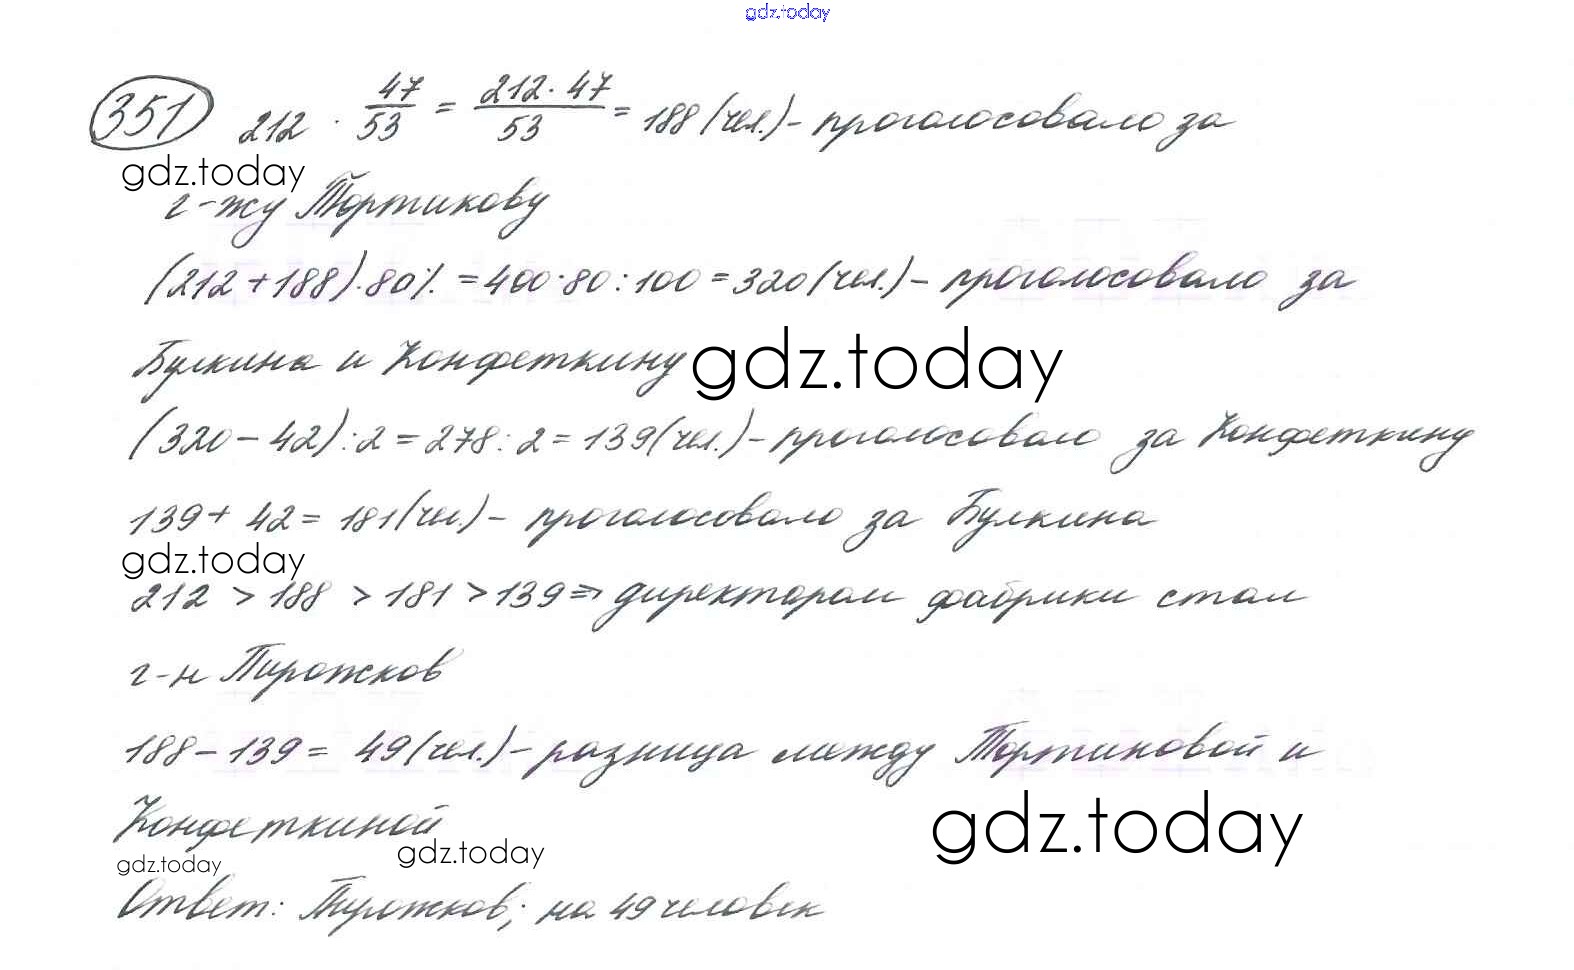 gdz.today
351 212 · 47/53 = 212 · 47/53 = 188 (чел.) – проголосовало за
gdz.today
г-жу Тортикову
(212 + 188) · 80% = 400 · 80 : 100 = 320 (чел.) – проголосовало за
Булкина и Конфеткину
gdz.today
(320 – 42) : 2 = 278 : 2 = 139 (чел.) – проголосовало за Конфеткину
139 + 42 = 181 (чел.) – проголосовало за Булкина
gdz.today
212 > 188 > 181 > 139 ⇒ директором фабрики стал
г-н Пирожков
188 – 139 = 49 (чел.) – разница между Тортиковой и
Конфеткиной
gdz.today
gdz.today
gdz.today
Ответ: Пирожков; на 49 человек